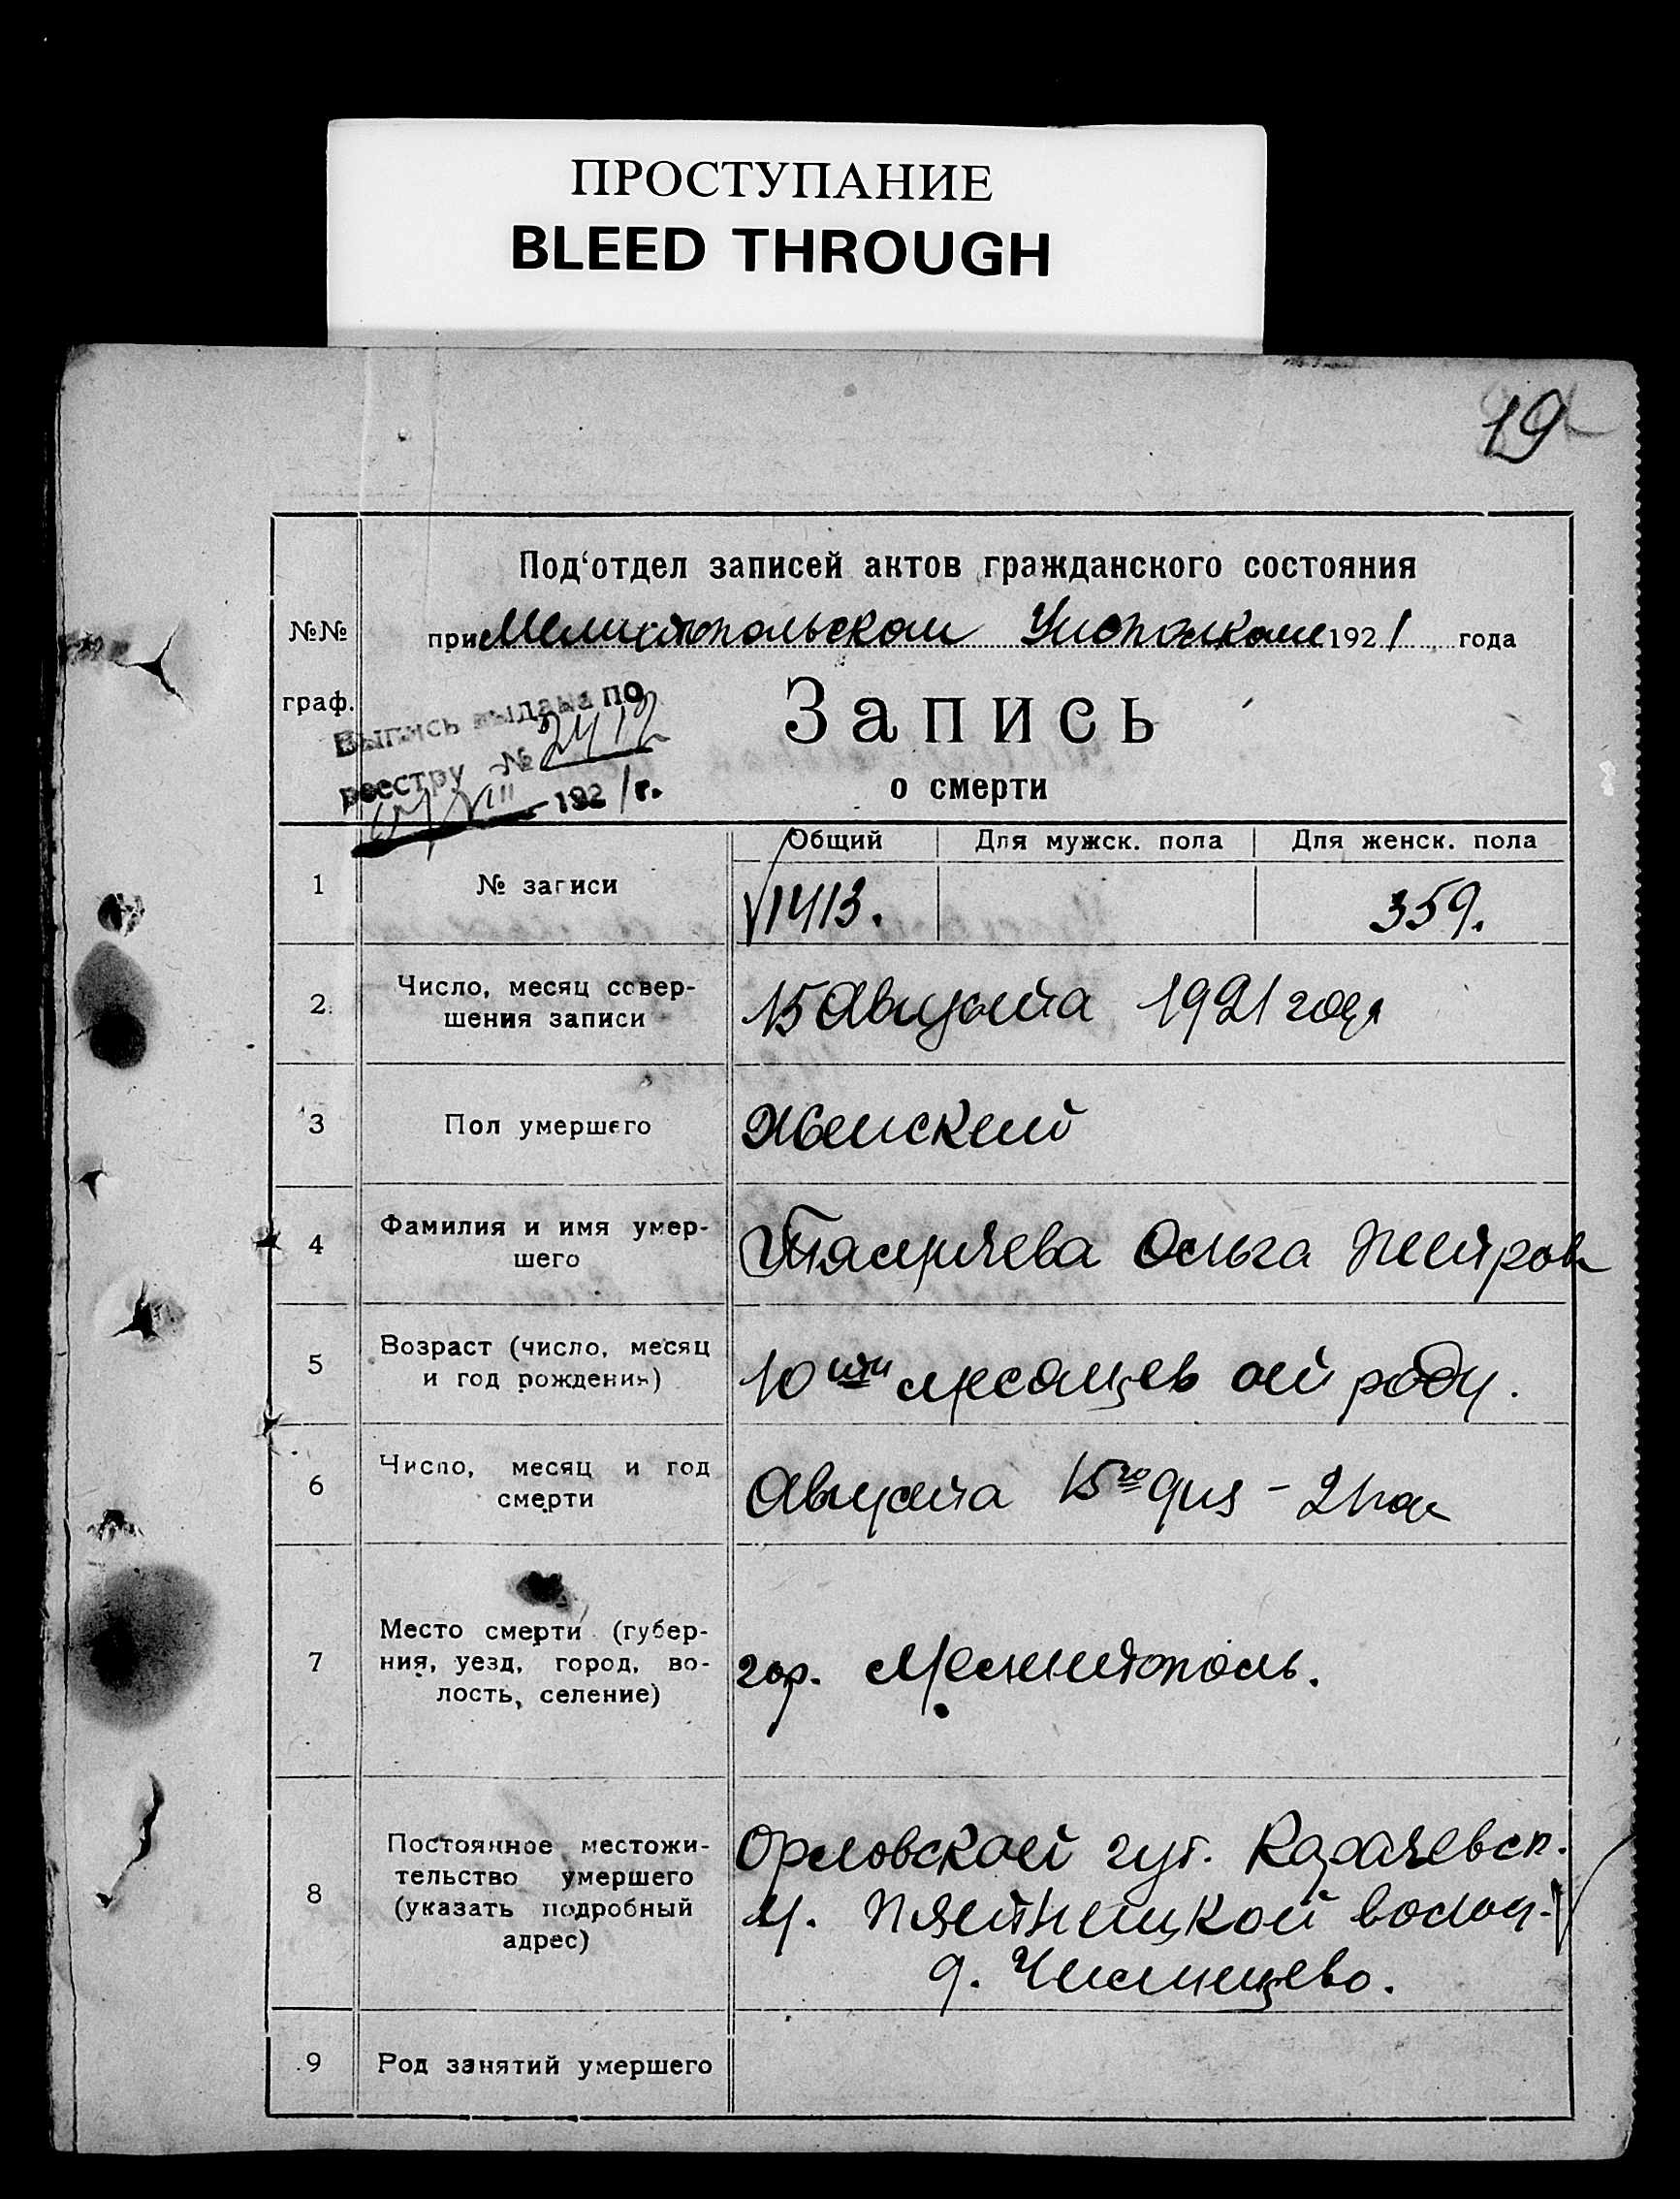 ПРОСТУПАНИЕ
BLEED THROUGH
19
Под‘отдел записей актов гражданского состояния
№№ граф.
при Мелитопольском Уисполкоме 1921 года
Выпись выдана по
реестру № 2412
VIII 1921 г.
Запись
о смерти
Общий Для мужск. пола Для женск. пола
1 № записи 1413. 359.
2 Число, месяц совер-
шения записи 15 Августа 1921 года
3 Пол умершего Женский
4 Фамилия и имя умер-
шего Ольга Петров
5 Возраст (число, месяц
и год рождения) 10ити месяцев от роду.
6 Число, месяц и год
смерти Августа 15го дня –
7 Место смерти (губер-
ния, уезд, город, во-
лость, селение) гор. Мелитополь.
8 Постоянное местожи-
тельство умершего
(указать подробный
адрес)
Орловской губ. Карачевск.
у. Пятницкой волост.
д.
9 Род занятий умершего